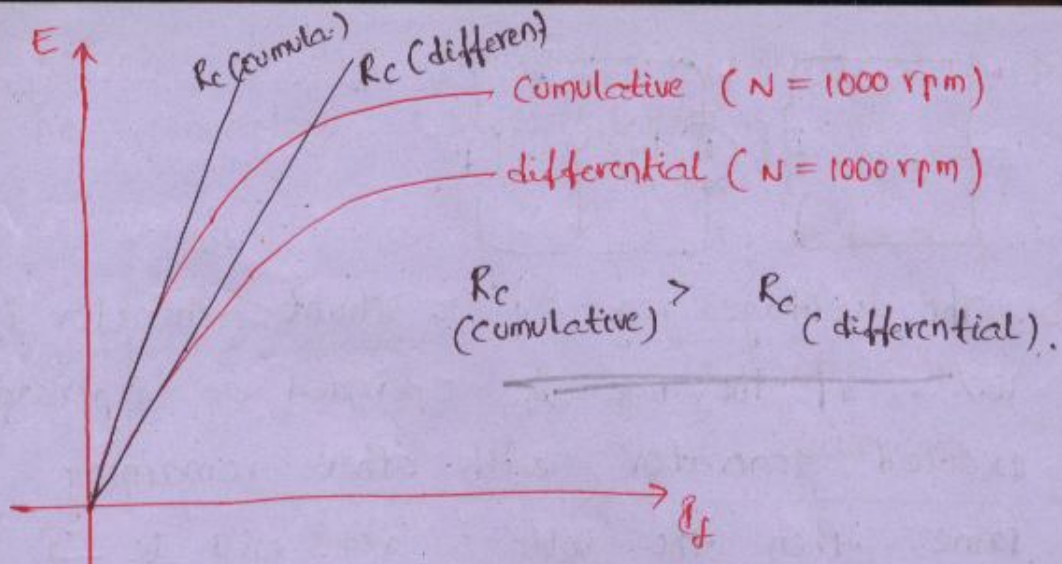 E
Rc (cumula.)
Rc (different)
Cumulative (N = 1000 rpm)
differential (N = 1000 rpm)
Rc > Rc
(cumulative) (differential).
If